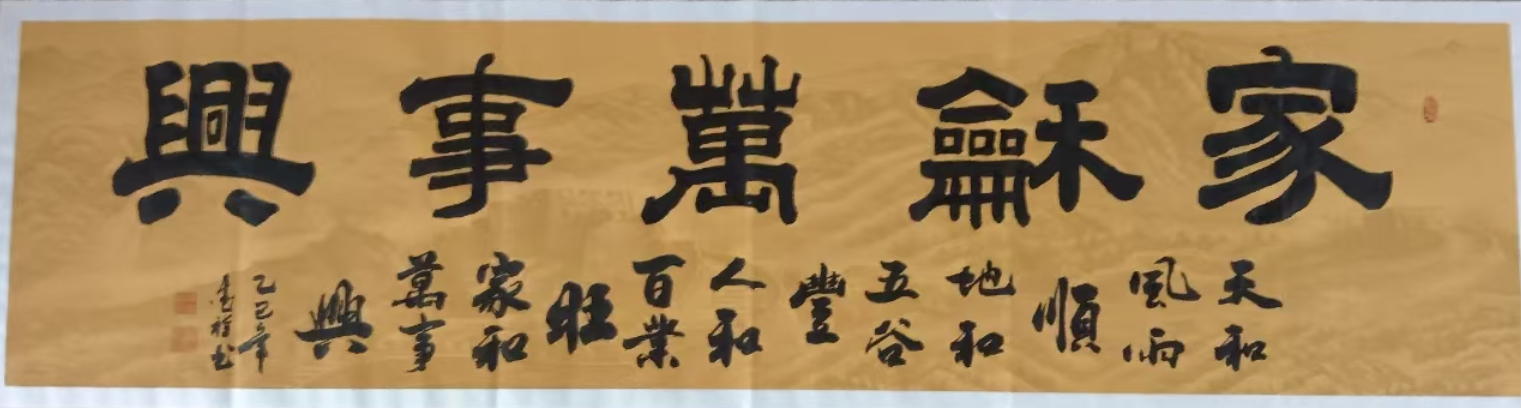 家龢萬事興
天和
風雨
順
地和
五谷
豐
人和
百業
旺
家和
萬事
興
乙巳年
書